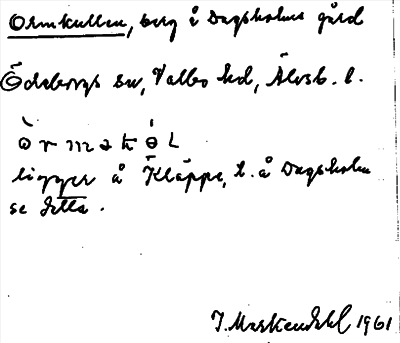 Ormkullen, berg å Dagsholms gård
Ödeborgs sn, Valbo hd, Älvsb. l.
òrmakɵ́L
ligger å Kläppe, h. å Dagsholm
se detta.
J. Markendahl 1961